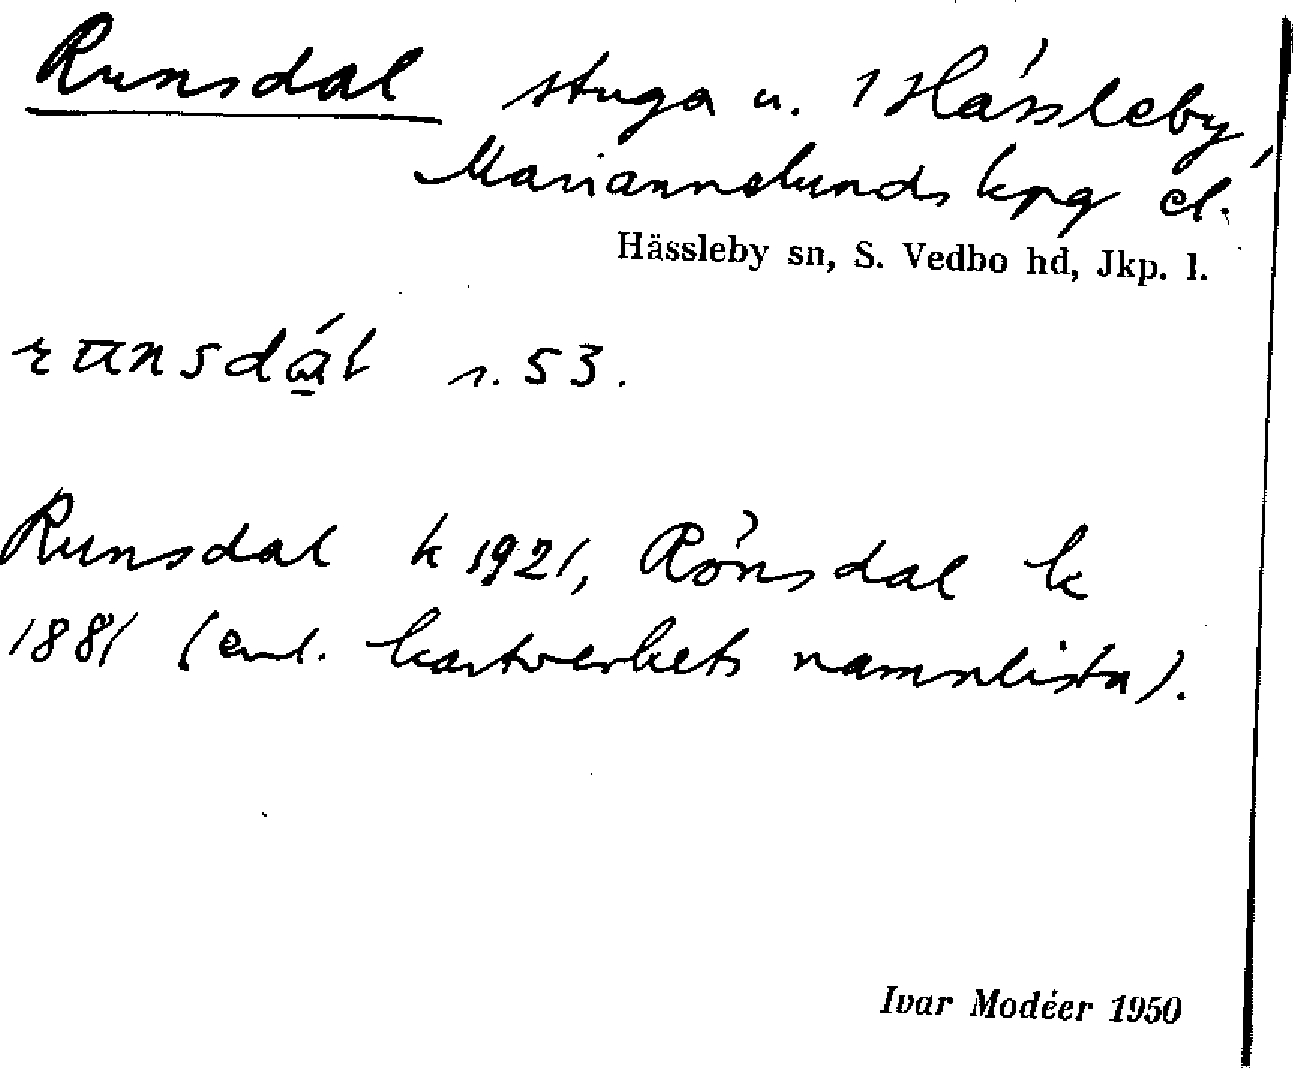 Runsdal stuga u. 1 Hässleby,
Mariannelunds kpg el.
Hässleby sn, S. Vedbo hd, Jkp. l.
s. 53.
Runsdal k 1921, Rönsdal k
1881 (enl. kartverkets namnlista).
Ivar Modéer 1950